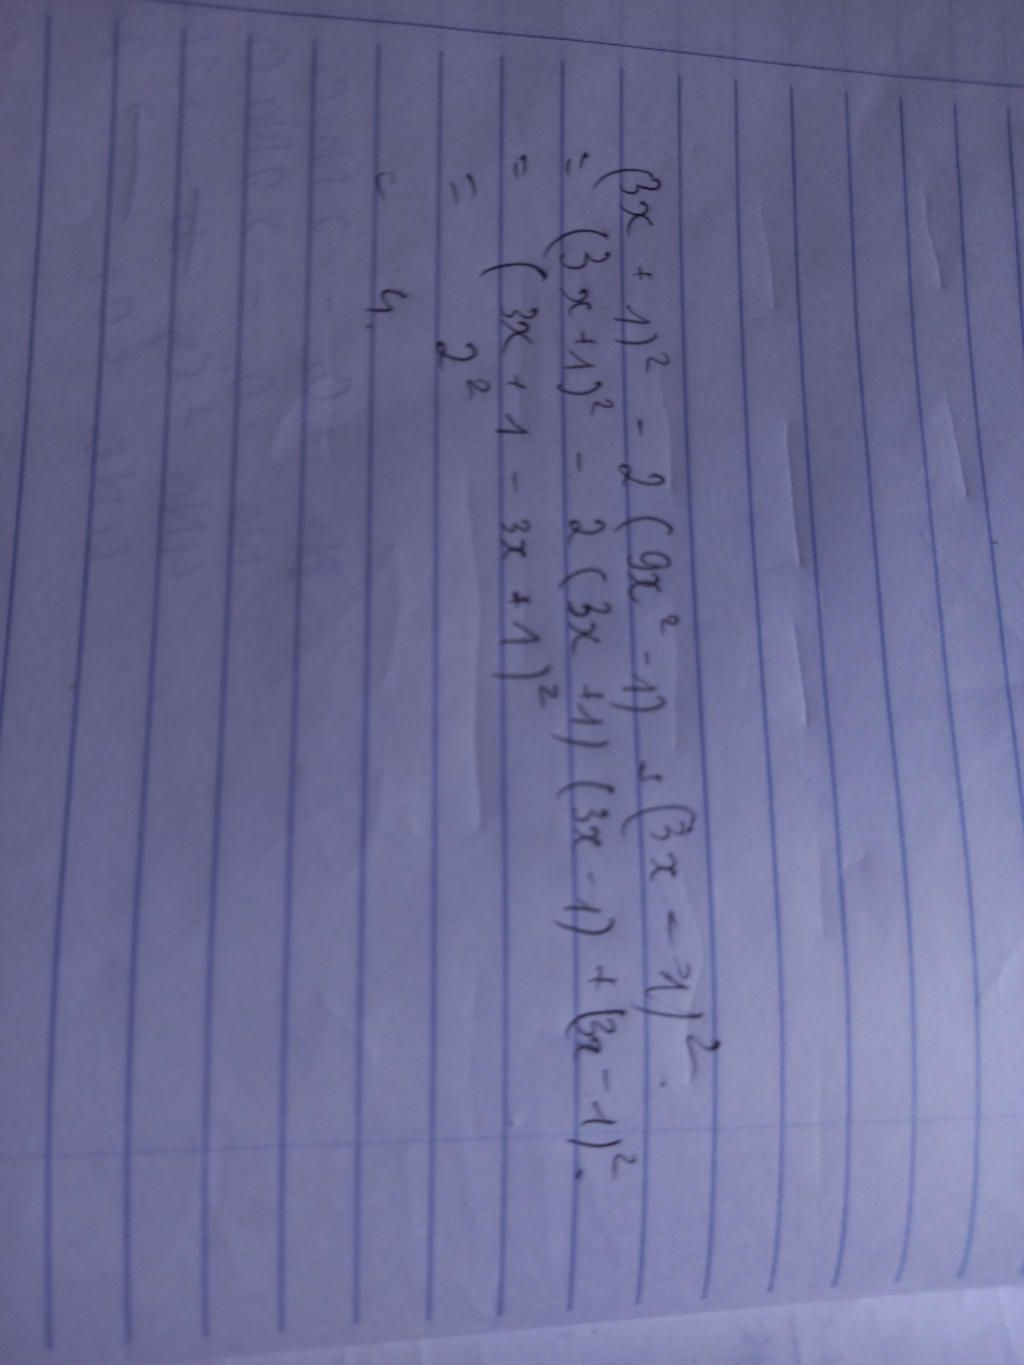 (3x + 1)² - 2 (9x² - 1) + (3x - 1)².
= (3x + 1)² - 2 (3x + 1) (3x - 1) + (3x - 1)².
= (3x + 1 - 3x + 1)²
= 2²
= 4.